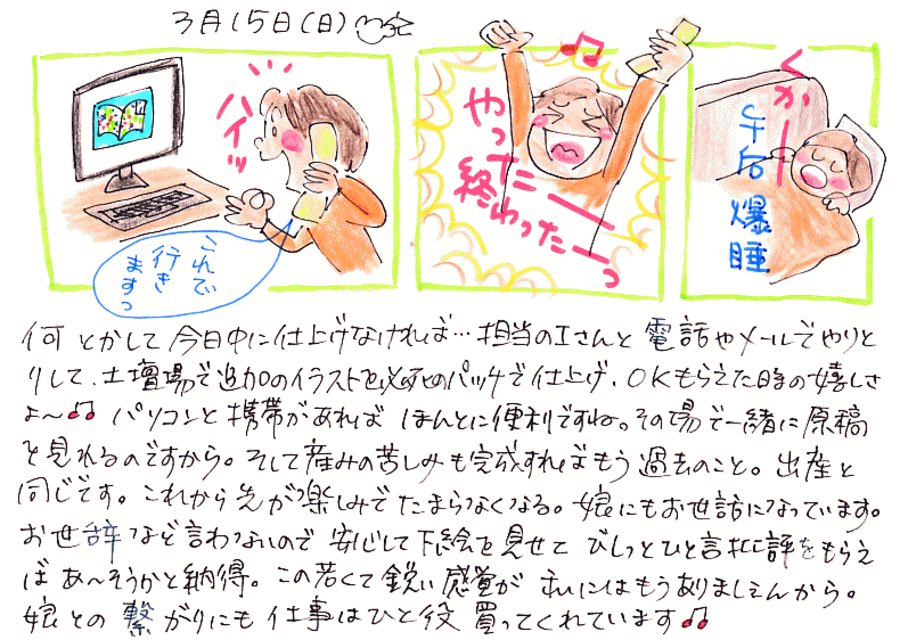 3月15日(日)
ハイッ
これで
行き
ますっ
やったーーっ
終わったーっ
くかー
午后爆睡
何とかして今日中に仕上げなければ…担当のIさんと電話やメールでやりと
りして、土壇場で追加のイラストを必死のパッチで仕上げ、OKもらえた時の嬉しさ
よ〜♫ パソコンと携帯があれば ほんとに便利ですね。その場で一緒に原稿
を見れるのですから。そして産みの苦しみも完成すればもう過去のこと。出産と
同じです。これから先が楽しみでたまらなくなる。娘にもお世話になっています。
お世辞など言わないので 安心して下絵を見せて びしっとひと言批評をもらえ
ば あ〜そうかと納得。この若くて鋭い感覚が 私にはもうありましぇんから。
娘との繋がりにも 仕事はひと役 買ってくれています♫